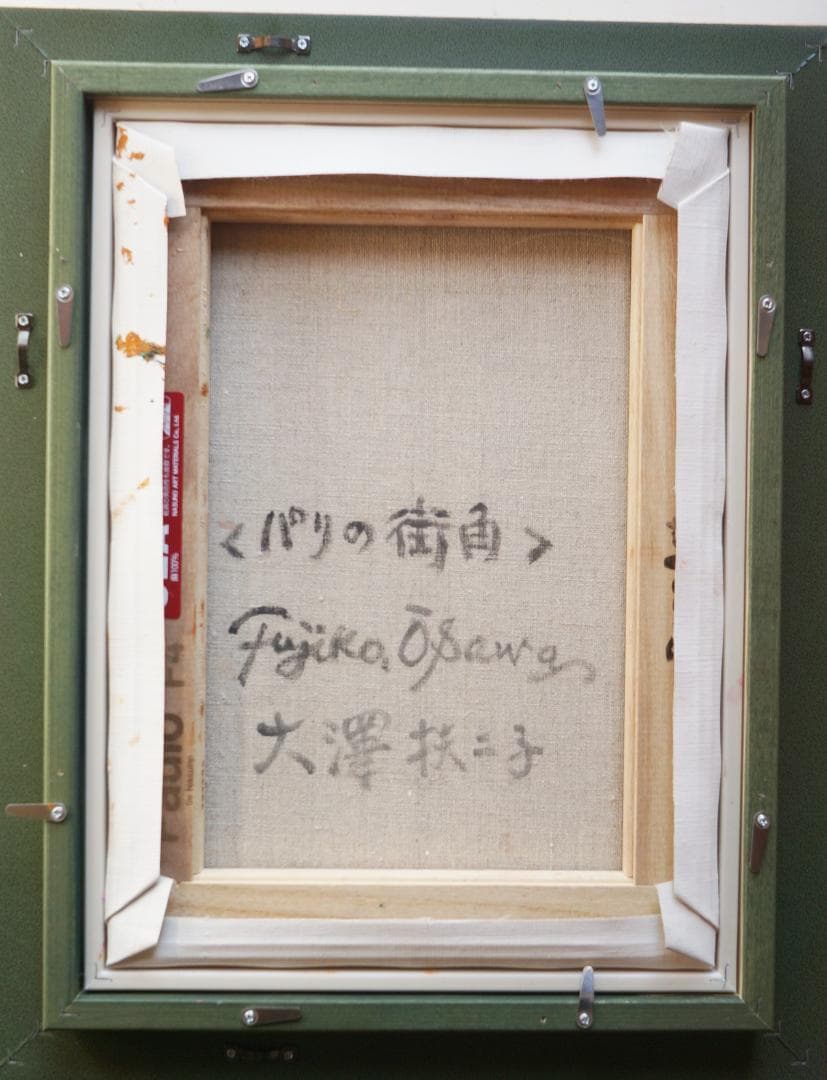 <パリの街角>
Fujiko, Ōsawa
大澤 扶二子
NABURA ART MATERIALS Co., Ltd.
麻100%
F4